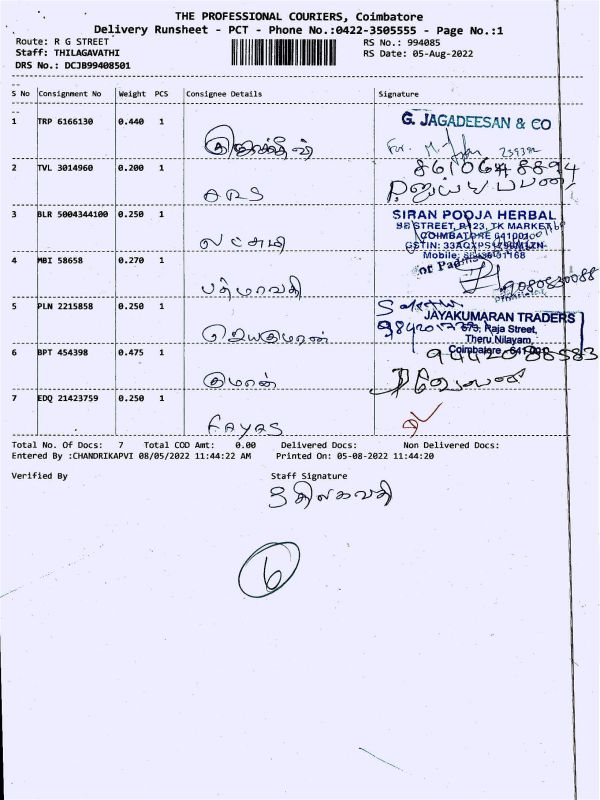 THE PROFESSIONAL COURIERS, Coimbatore
Delivery Runsheet - PCT - Phone No.:0422-3505555 - Page No.:1
Route: R G STREET RS No.: 994085
Staff: THILAGAVATHI RS Date: 05-Aug-2022
DRS No.: DCJB99408501
S No Consignment No Weight PCS Consignee Details Signature
1 TRP 6166130 0.440 1 G. JAGADEESAN & CO
For.
2 TVL 3014960 0.200 1 ARS
3 BLR 5004344100 0.250 1 லட்சுமி SIRAN POOJA HERBAL
TK MARKET
COIMBATORE
GSTIN:
Mobile:
4 MBI 58658 0.270 1 பத்மாவதி 9080830088
5 PLN 2215858 0.250 1 ஜெயகுமாரன் JAYAKUMARAN TRADERS
Raja Street,
Theru Nilayam,
Coimbatore
6 BPT 454398 0.475 1 குமரன்
7 EDQ 21423759 0.250 1 FAYAS DL
Total No. Of Docs: 7 Total COD Amt: 0.00 Delivered Docs: Non Delivered Docs:
Entered By :CHANDRIKAPVI 08/05/2022 11:44:22 AM Printed On: 05-08-2022 11:44:20
Verified By Staff Signature
திலகவதி
6